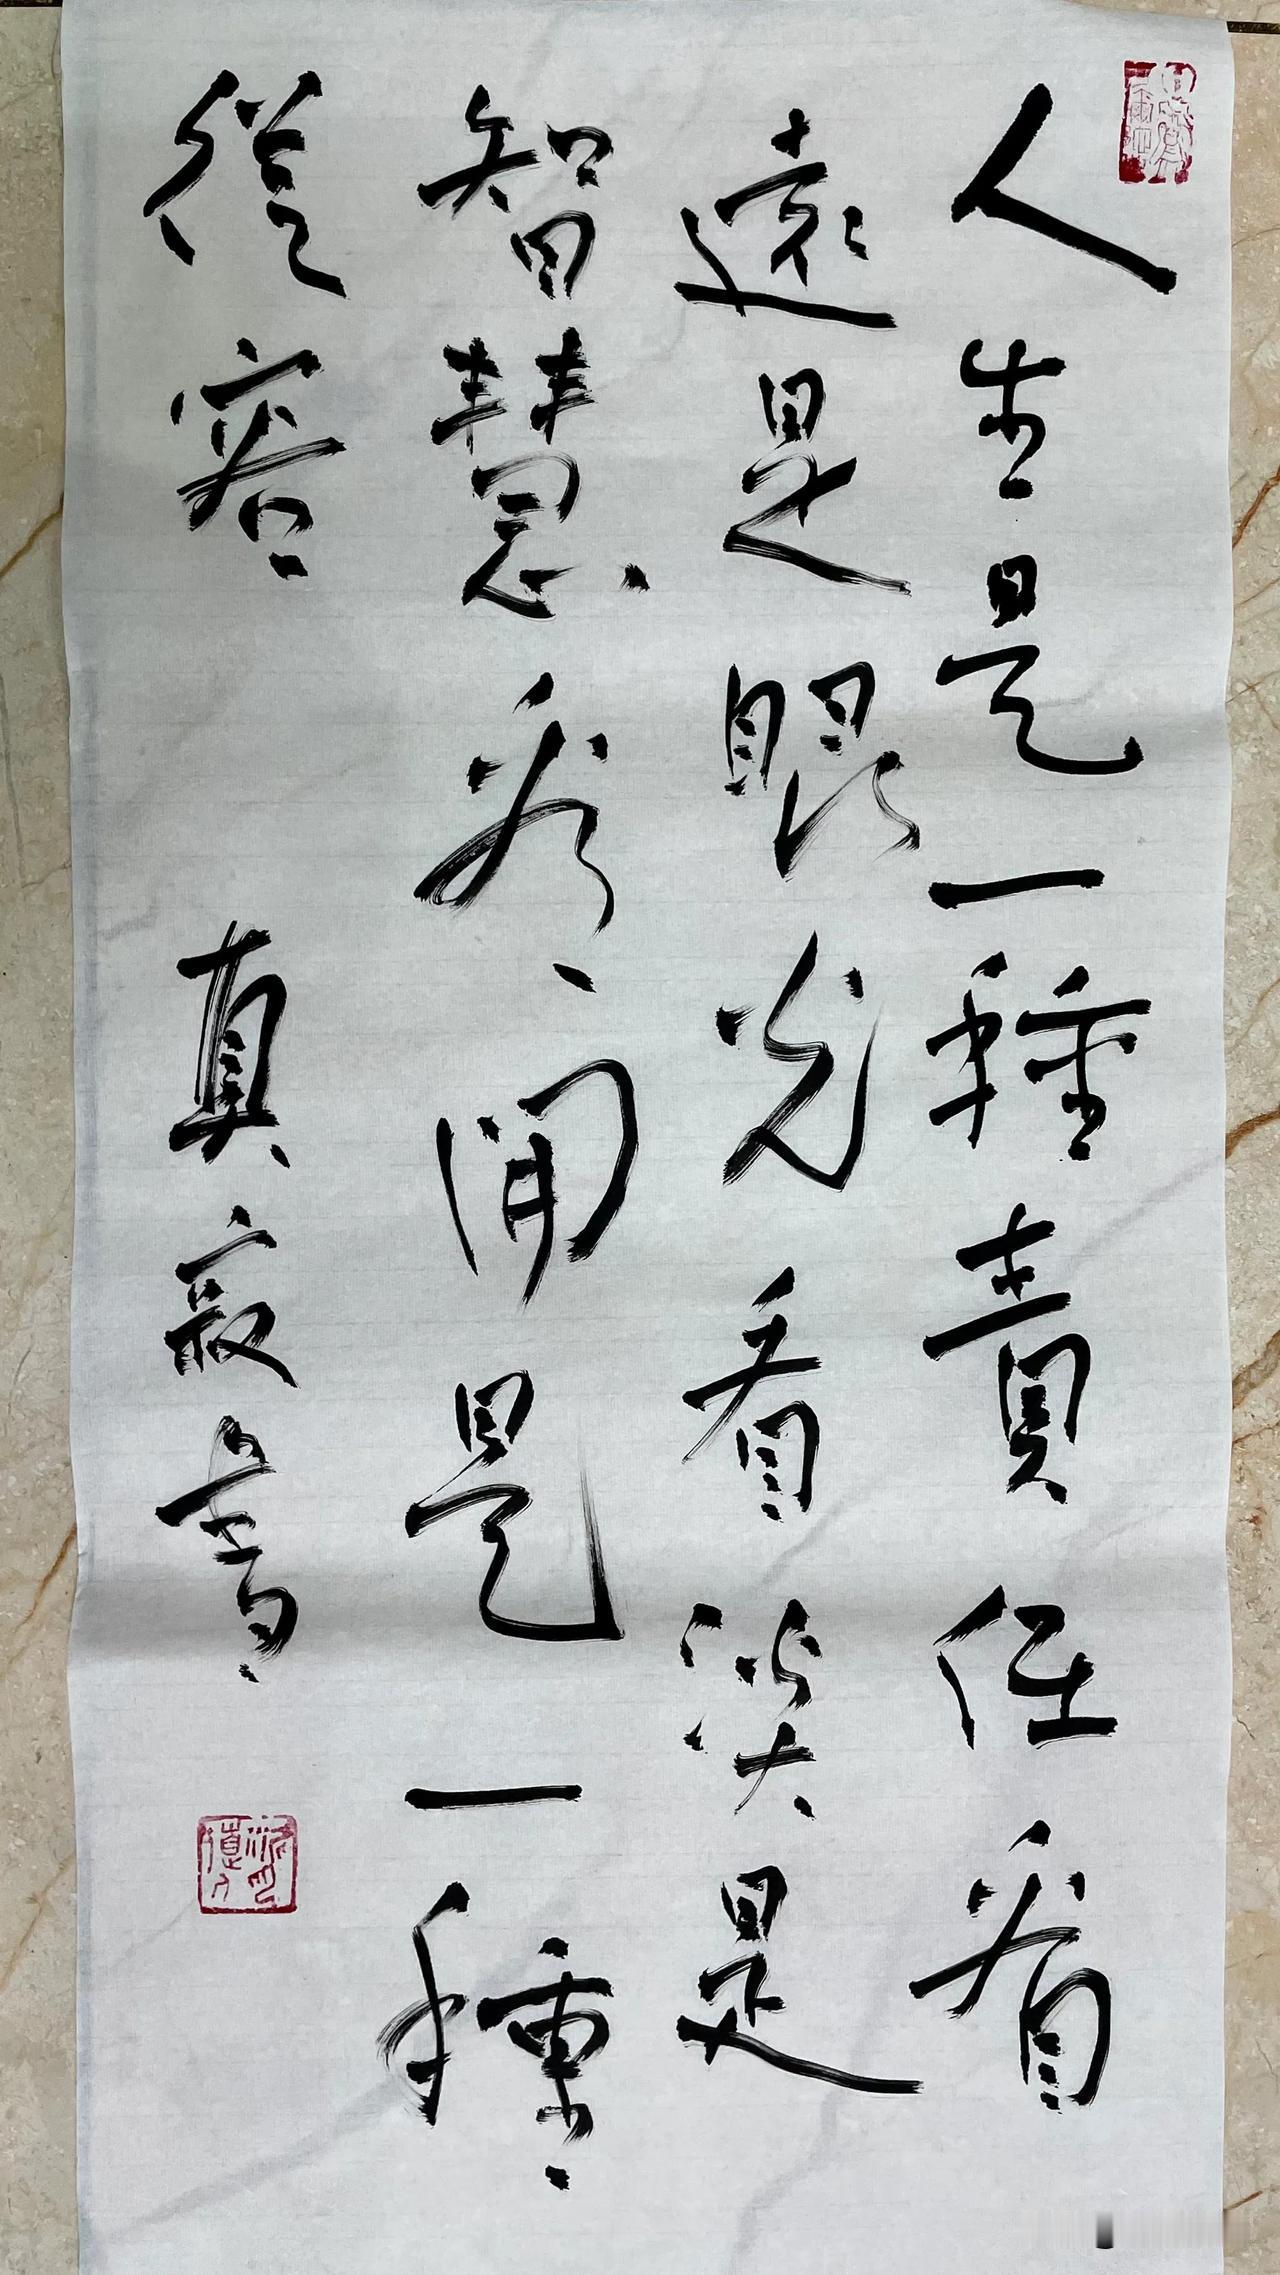 人生是一種責任看
遠是眼光看淡是
智慧看開是一種
從容 真寂書